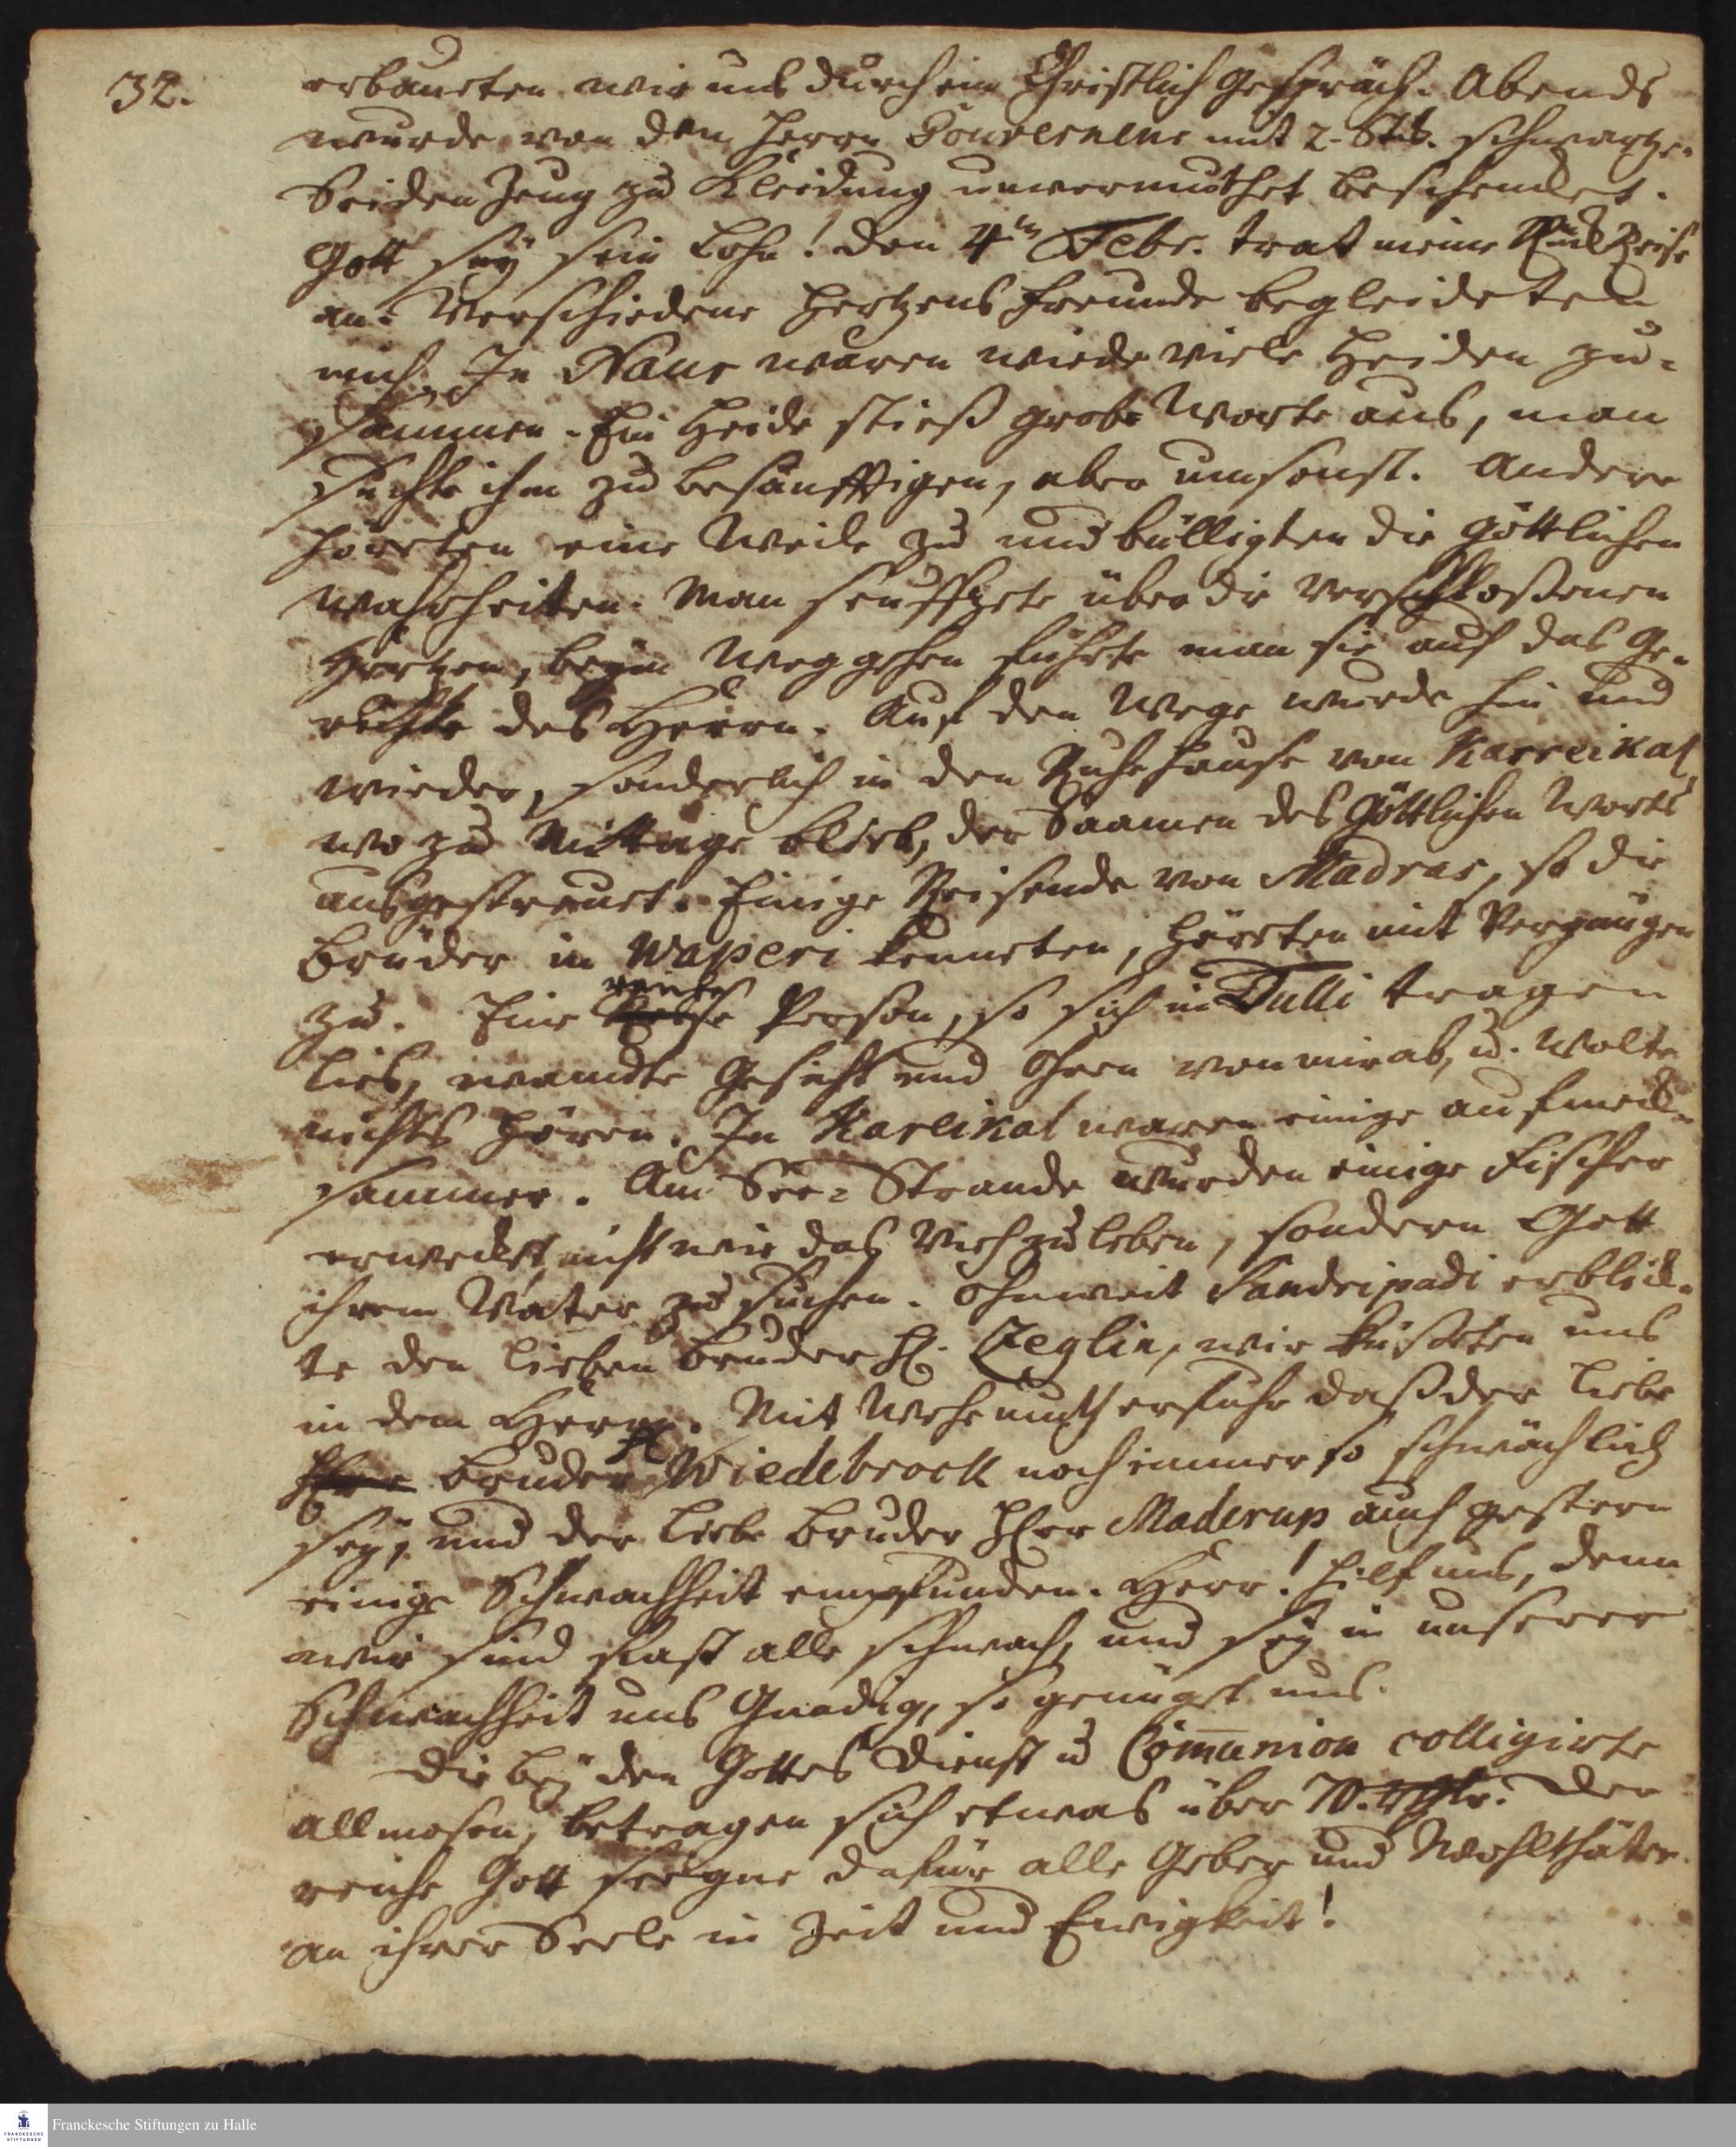 32.
erbaueten wir uns durch ein Christlich Gespräch. Abends
wurde von dem Herrn Gouverneur mit 2. Stk. schwartzen
Seiden Zeug zu Kleidung unvermuthet beschencket.
Gott sey sein Lohn! den 4ten Febr. trat meine Rück Reise
an. Verschiedene Hertzens Freunde begleideten
mich. In Naur waren wieder viele Heiden zu-
sammen. Ein Heide stieß grobe Worte aus, man
suchte ihn zu besänfftigen, aber umsonst. Andere
höreten eine Weile zu und bülligten die göttlichen
Wahrheiten. Man seuffzete über die verschloßenen
Hertzen, beym Weggehen führte man sie auf das Ge-
richte des Herrn. Auf den Wege wurde hin und
wieder, sonderlich in den Ruhehause von Karreikal,
wo zu Mittage blieb, der Saamen des Göttlichen Worts
ausgestreuet. Einige Reisende von Madras, so die
Brüder in Waperi kenneten, höreten mit Vergnügen
zu. Eine reiche Person, so sich in Tulli tragen
ließ, wandte Gesicht und Ohren von mir ab, u. wolte
nichts hören. In Kareikal waren einige aufmerck-
sammer. Am See-Strande wurden einige Fischer
erwecket nicht wie das Vieh zu leben, sondern Gott
ihrem Vater zu suchen. Ohnweit Sandripadi erblick-
te den lieben Bruder H. Zeglin, wir küßeten uns
in dem Herrn. Mit Wehmuth erfuhr daß der liebe
Herr Bruder H. Wiedebrock noch immer so schwächlich
sey, und der liebe Bruder Herr Maderup auch gestern
einige Schwachheit empfunden. Herr! hilf uns, denn
wir sind fast alle schwach, und sey in unserer
Schwachheit uns Gnädig, so genüget uns.
Die bey den Gottes Dienst u Com̄union colligirte
Allmosen, betragen sich etwas über 70. rthlr. Der
reiche Gott seegne dafür alle Geber und Wohlthäter
an ihrer Seele in Zeit und Ewigkeit!
Franckesche Stiftungen zu Halle
FRANCKESCHE
STIFTUNGEN